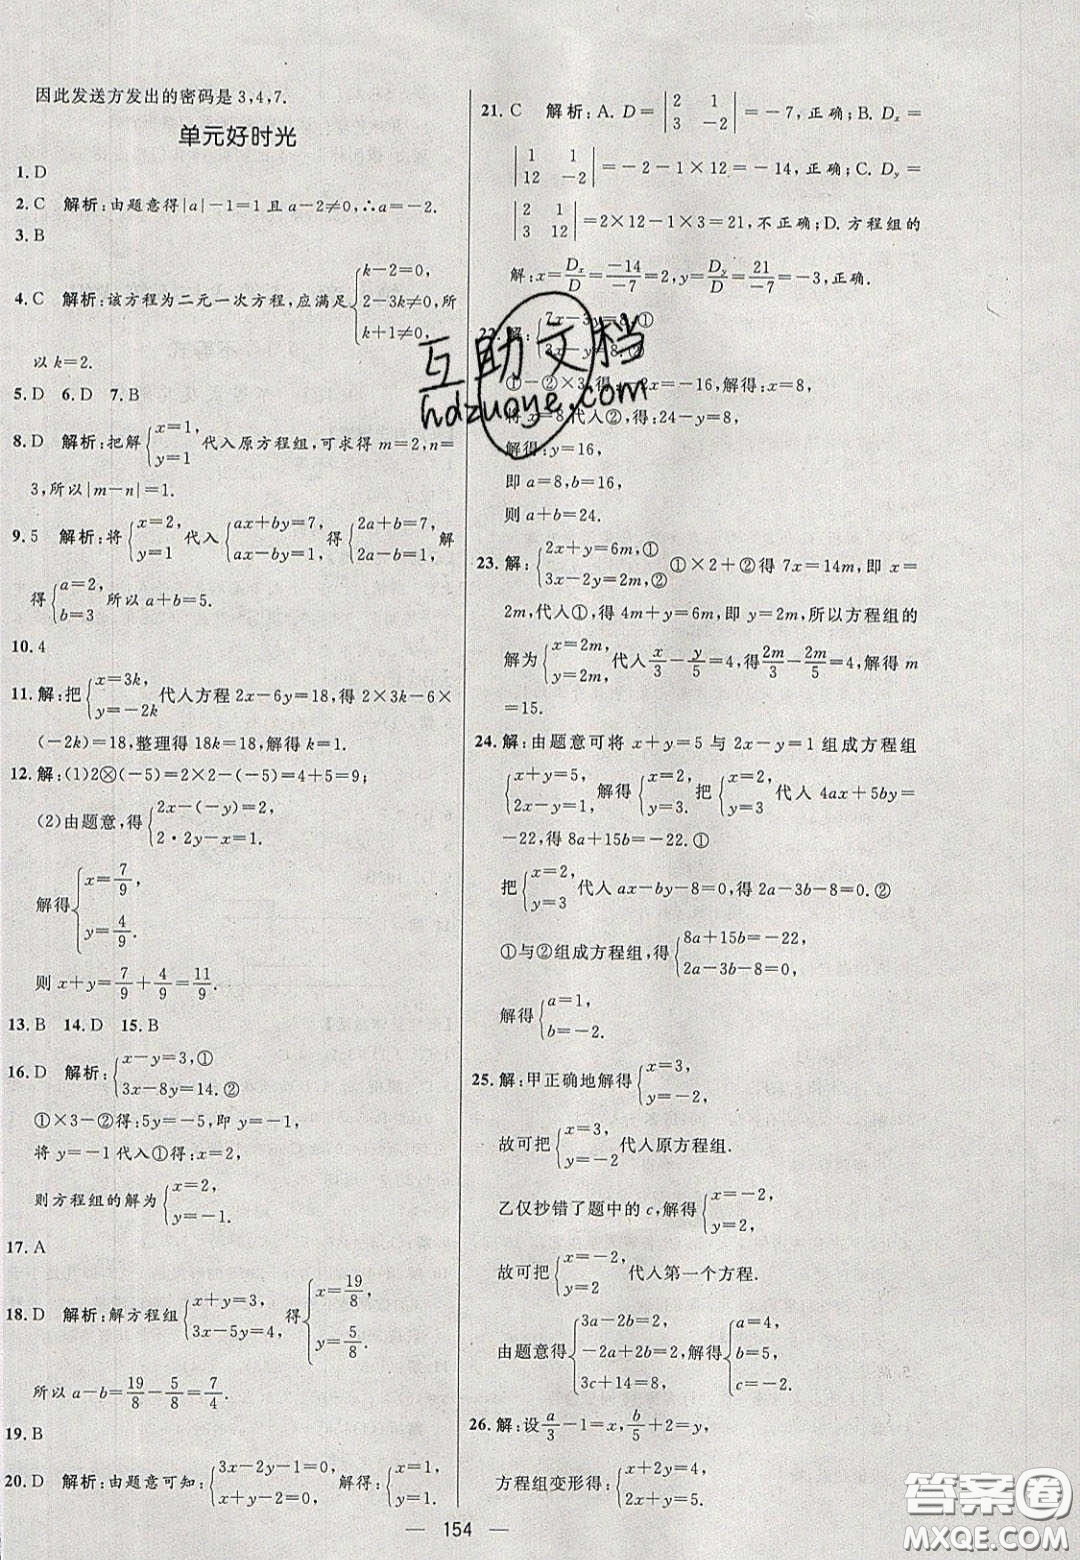 因此发送方发出的密码是 3,4,7.
单元好时光
1. D
2. C 解析:由题意得|a|-1=1 且 a-2≠0,∴a=-2.
3. B
4. C 解析:该方程为二元一次方程,应满足{k-2=0, 2-3k≠0, k+1≠0,所
以 k=2.
5. D 6. D 7. B
8. D 解析:把解{x=1, y=1 代入原方程组,可求得 m=2,n=
3,所以|m-n|=1.
9. 5 解析:将{x=2, y=1 代入{ax+by=7, ax-by=1, 得{2a+b=7, 2a-b=1, 解
得{a=2, b=3 所以 a+b=5.
10. 4
11. 解:把{x=3k, y=-2k 代人方程 2x-6y=18,得 2×3k-6×
(-2k)=18,整理得 18k=18,解得 k=1.
12. 解:(1)2⊗(-5)=2×2-(-5)=4+5=9;
(2)由题意,得{2x-(-y)=2, 2·2y-x=1.
解得{x=7/9, y=4/9.
则 x+y=7/9+4/9=11/9.
13. B 14. D 15. B
16. D 解析:{x-y=3,① 3x-8y=14.②
①×3-②得:5y=-5,即 y=-1,
将 y=-1 代入①得:x=2,
则方程组的解为{x=2, y=-1.
17. A
18. D 解析:解方程组{x+y=3, 3x-5y=4, 得{x=19/8, y=5/8.
所以 a-b=19/8-5/8=7/4.
19. B
20. D 解析:由题意可知:{3x-2y-1=0, x+y-2=0, 解得:{x=1, y=1.
21. C 解析:A. D=|2 1 3 -2|=-7,正确;B. Dx=
|1 1 12 -2|=-2-1×12=-14,正确;C. Dy=
|2 1 3 12|=2×12-1×3=21,不正确;D. 方程组的
解:x=Dx/D=-14/-7=2,y=Dy/D=21/-7=-3,正确.
22. 解:{7x-3y=8,① 3x-y=8,②
①-②×3,得:-2x=-16,解得:x=8,
将 x=8 代人②,得:24-y=8,
解得:y=16,
即 a=8,b=16,
则 a+b=24.
23. 解:{2x+y=6m,① 3x-2y=2m,② ①×2+②得 7x=14m,即 x=
2m,代人①,得 4m+y=6m,即 y=2m,所以方程组的
解为{x=2m, y=2m, 代人x/3-y/5=4,得2m/3-2m/5=4,解得 m
=15.
24. 解:由题意可将 x+y=5 与 2x-y=1 组成方程组
{x+y=5, 2x-y=1, 解得{x=2, y=3. 把{x=2, y=3 代人 4ax+5by=
-22,得 8a+15b=-22.①
把{x=2, y=3 代人 ax-by-8=0,得 2a-3b-8=0.②
①与②组成方程组,得{8a+15b=-22, 2a-3b-8=0,
解得{a=1, b=-2.
25. 解:甲正确地解得{x=3, y=-2,
故可把{x=3, y=-2 代人原方程组.
乙仅抄错了题中的 c,解得{x=-2, y=2,
故可把{x=-2, y=2 代人第一个方程.
由题意得{3a-2b=2, -2a+2b=2, 3c+14=8, 解得:{a=4, b=5, c=-2.
26. 解:设a/3-1=x,b/5+2=y,
方程组变形得:{x+2y=4, 2x+y=5,
154
互助文档
hdzuoye.com
答案圈
MXQE.COM